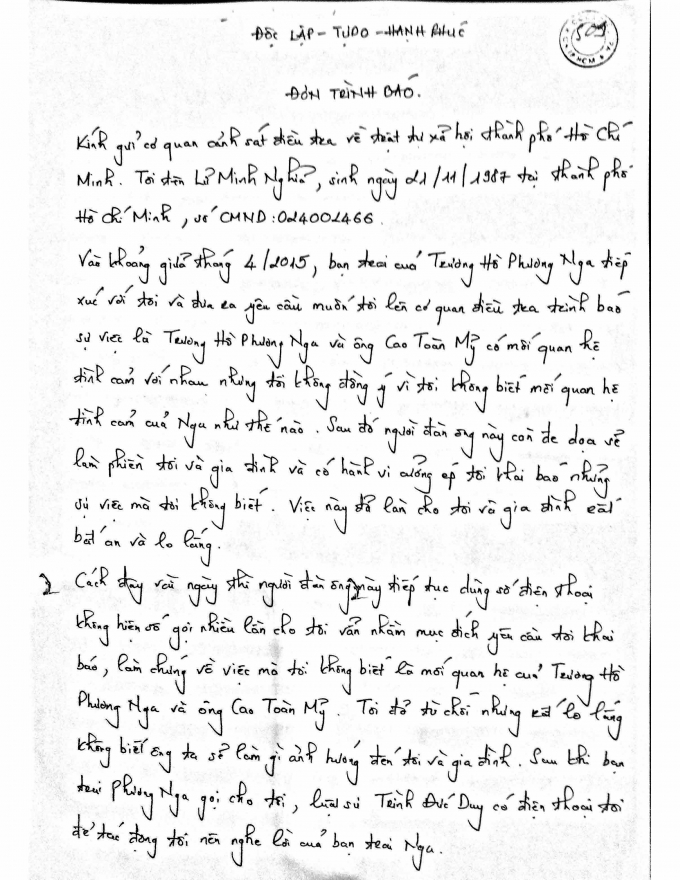 ĐỘC LẬP - TỰ DO - HẠNH PHÚC
509
ĐƠN TRÌNH BÁO.
Kính gửi cơ quan cảnh sát điều tra về trật tự xã hội thành phố Hồ Chí
Minh. Tôi tên Lữ Minh Nghĩa, sinh ngày 21/11/1987 tại thành phố
Hồ Chí Minh, số CMND: 024001466.
Vào khoảng giữa tháng 4/2015, bạn trai của Trương Hồ Phương Nga tiếp
xúc với tôi và đưa ra yêu cầu muốn tôi lên cơ quan điều tra trình báo
sự việc là Trương Hồ Phương Nga và ông Cao Toàn Mỹ có mối quan hệ
tình cảm với nhau nhưng tôi không đồng ý vì tôi không biết mối quan hệ
tình cảm của Nga như thế nào. Sau đó người đàn ông này còn đe dọa sẽ
làm phiền tôi và gia đình và có hành vi cưỡng ép tôi khai báo những
sự việc mà tôi không biết. Việc này đã làm cho tôi và gia đình rất
bất an và lo lắng.
2 Cách đây vài ngày thì người đàn ông này tiếp tục dùng số điện thoại
không hiện số gọi nhiều lần cho tôi vẫn nhằm mục đích yêu cầu tôi khai
báo, làm chứng về việc mà tôi không biết là mối quan hệ của Trương Hồ
Phương Nga và ông Cao Toàn Mỹ. Tôi đã từ chối nhưng rất lo lắng
không biết ông ta sẽ làm gì ảnh hưởng đến tôi và gia đình. Sau khi bạn
trai Phương Nga gọi cho tôi, luật sư Trịnh Đức Duy có điện thoại tôi
để tác động tôi nên nghe lời của bạn trai Nga.